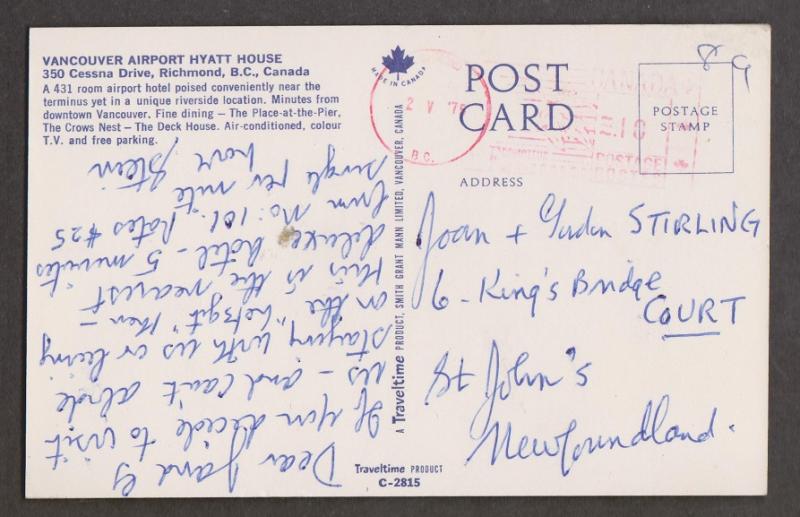 VANCOUVER AIRPORT HYATT HOUSE
350 Cessna Drive, Richmond, B.C., Canada
A 431 room airport hotel poised conveniently near the
terminus yet in a unique riverside location. Minutes from
downtown Vancouver. Fine dining — The Place-at-the-Pier,
The Crows Nest — The Deck House. Air-conditioned, colour
T.V. and free parking.
Dear J and G
If you decide to visit
us - and can't abide
staying with us or being
on the then -
this is the nearest
deluxe hotel - 5 minutes
from No: 101. Rates $25
single per nite
love
A Traveltime PRODUCT, SMITH GRANT MANN LIMITED, VANCOUVER, CANADA
Traveltime PRODUCT
C-2815
MADE IN CANADA
2 V '76
B.C.
POST
CARD
CANADA
POSTAGE
89
POSTAGE
STAMP
ADDRESS
Joan + STIRLING
6 - King's Bridge
COURT
St John's
Newfoundland.